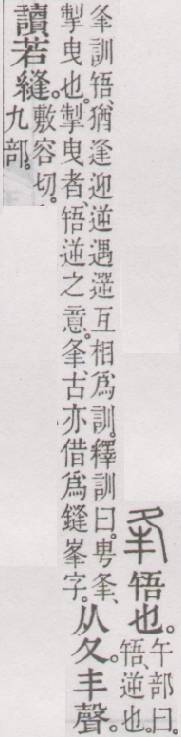 夆
啎也。
午部曰。
啎、逆也。
夆訓啎、猶逢迎逆遇遻互相爲訓。釋訓曰。甹夆、
掣曳也。掣曳者、啎逆之意。夆古亦借爲鏠峯字。
从夂。丰聲。
讀若縫。
敷容切。
九部。